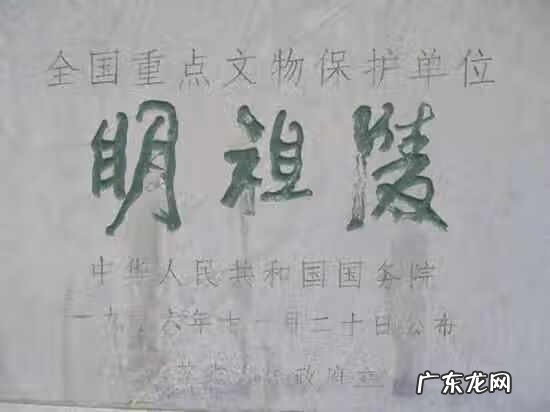 全国重点文物保护单位
明祖陵
中华人民共和国国务院
一九九六年十一月二十日公布
政府立
广东龙网